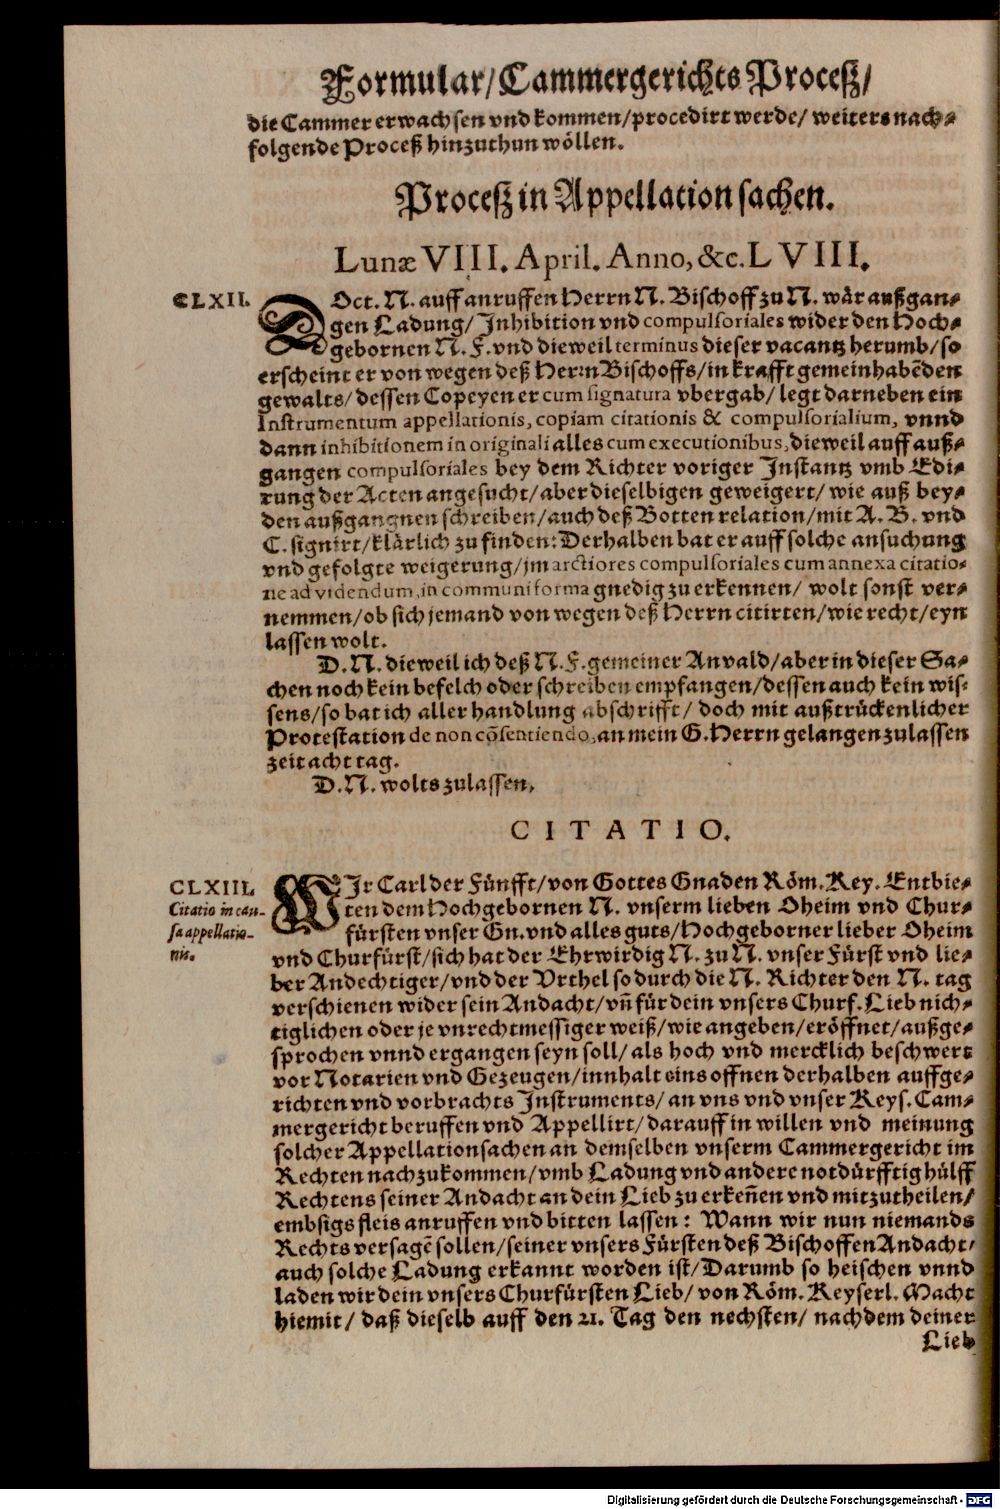 Formular/Cammergerichts Proceß/
die Cammer erwachsen vnd kommen/procedirt werde/ weiters nach-
folgende Proceß hinzuthun wöllen.
Proceß in Appellation sachen.
Lunæ VIII. April. Anno, &c. LVIII.
CLXII.
DOct. N. auff anruffen Herrn N. Bischoff zu N. wär außgan-
gen Ladung/ Inhibition vnd compulsoriales wider den Hoch-
gebornen N. F. vnd dieweil terminus dieser vacantz herumb/so
erscheint er von wegen deß Herrn Bischoffs/in krafft gemein habēden
gewalts/ dessen Copeyen er cum signatura vbergab/ legt darneben ein
Instrumentum appellationis, copiam citationis & compulsorialium, vnnd
dann inhibitionem in originali alles cum executionibus, dieweil auff auß-
gangen compulsoriales bey dem Richter voriger Instantz vmb Edi-
rung der Acten angesucht/aber dieselbigen geweigert/ wie auß bey-
den außgangnen schreiben/auch deß Botten relation/mit A. B. vnd
C. signirt/klärlich zu finden: Derhalben bat er auff solche ansuchung
vnd gefolgte weigerung/jm arctiores compulsoriales cum annexa citatio-
ne ad videndum, in communi forma gnedig zu erkennen/ wolt sonst ver-
nemmen/ob sich jemand von wegen deß Herrn citirten/wie recht/eyn
lassen wolt.
D. N. dieweil ich deß N. F. gemeiner Anvald/aber in dieser Sa-
chen noch kein befelch oder schreiben empfangen/dessen auch kein wis-
sens/so bat ich aller handlung abschrifft/ doch mit außtrückenlicher
Protestation de non cōsentiendo, an mein G. Herrn gelangen zulassen
zeit acht tag.
D. N. wolts zulassen,
CITATIO.
CLXIII.
Citatio in cau-
sa appellatio-
nis.
WIr Carl der Fünfft/von Gottes Gnaden Röm. Key. Entbie-
ten dem Hochgebornen N. vnserm lieben Oheim vnd Chur-
fürsten vnser Gn. vnd alles guts/Hochgeborner lieber Oheim
vnd Churfürst/sich hat der Ehrwirdig N. zu N. vnser Fürst vnd lie-
ber Andechtiger/vnd der Vrthel so durch die N. Richter den N. tag
verschienen wider sein Andacht/vñ für dein vnsers Churf. Lieb nich-
tiglichen oder je vnrechtmessiger weiß/wie angeben/eröffnet/außge-
sprochen vnnd ergangen seyn soll/ als hoch vnd mercklich beschwert
vor Notarien vnd Gezeugen/innhalt eins offnen derhalben auffge-
richten vnd vorbrachts Instruments/ an vns vnd vnser Keys. Cam-
mergericht beruffen vnd Appellirt/darauff in willen vnd meinung
solcher Appellationsachen an demselben vnserm Cammergericht im
Rechten nachzukommen/vmb Ladung vnd andere notdürfftig hülff
Rechtens seiner Andacht an dein Lieb zu erkeñen vnd mitzutheilen/
embsigs fleis anruffen vnd bitten lassen: Wann wir nun niemands
Rechts versagē sollen/seiner vnsers Fürsten deß Bischoffen Andacht/
auch solche Ladung erkannt worden ist/Darumb so heischen vnnd
laden wir dein vnsers Churfürsten Lieb/ von Röm. Keyserl. Macht
hiemit/ daß dieselb auff den 21. Tag den nechsten/ nachdem deiner
Lieb
Digitalisierung gefördert durch die Deutsche Forschungsgemeinschaft - DFG